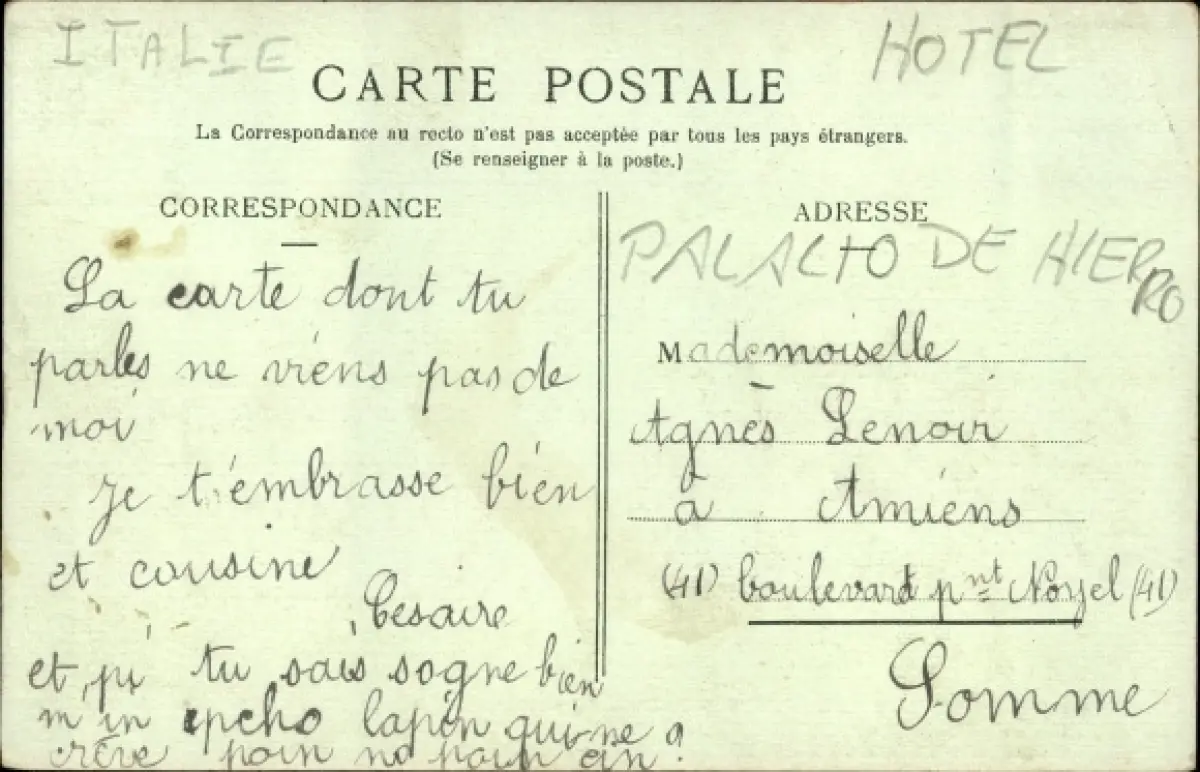 ITALIE
HOTEL
CARTE POSTALE
La Correspondance au recto n'est pas acceptée par tous les pays étrangers.
(Se renseigner à la poste.)
CORRESPONDANCE
La carte dont tu
parles ne viens pas de
moi
Je t'embrasse bien
et cousine
Cesaire
et pi tu sais sogne bien
m'in lapin qui ne
crève poin no poin ein!
ADRESSE
PALALIO DE HIERRO
Mademoiselle
Agnès Lenoir
à Amiens
(41) boulevard pnt Noyel (41)
Somme